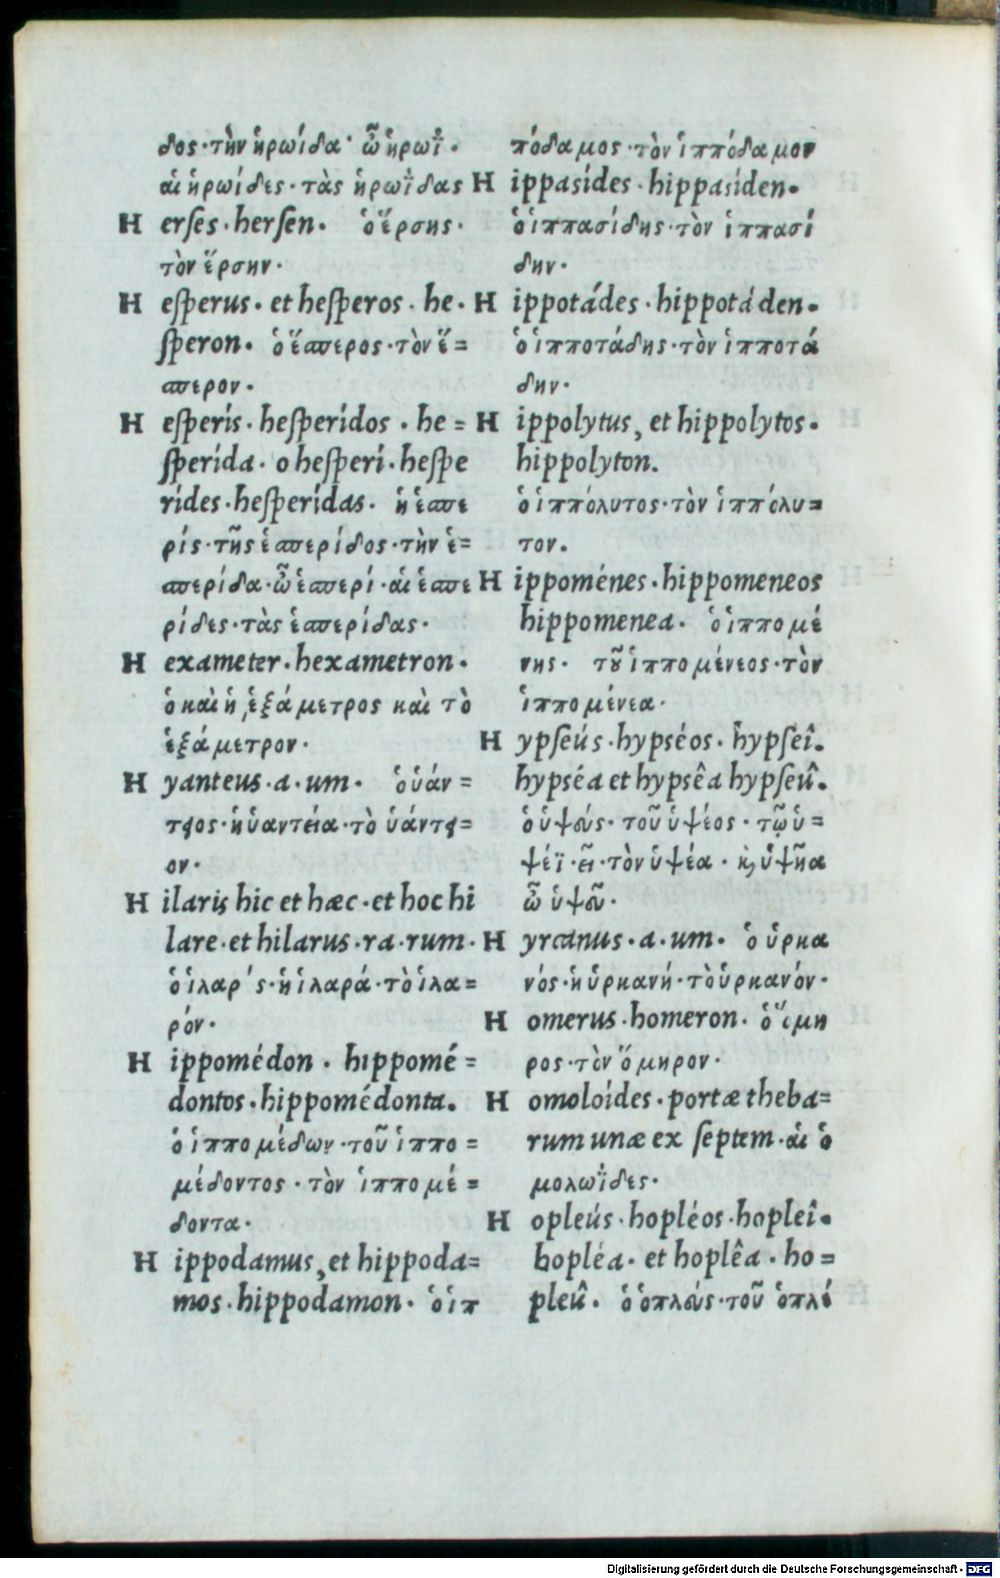 δος·τὴν ἡρωίδα· ὦ ἡρωῒ·
αἱ ἡρωίδες·τὰς ἡρωῒδας
H erſes·herſen. ὁ ἕρσης·
τὸν ἕρσην·
H eſperus. et heſperos. he.
ſperon. ὁ ἕσπερος·τὸν ἕ=
σπερον·
H eſperís·heſperídos. he=
ſperída. o heſperí·heſpe
rídes·heſperídas. ἡ ἑσπε
ρίς·τῆς ἑσπερίδος·τὴν ἑ=
σπερίδα·ὦ ἑσπερί·αἱ ἑσπε
ρίδες·τὰς ἑσπερίδας·
H exameter. hexametron.
ὁ καὶ ἡ ἑξάμετρος καὶ τὸ
ἑξάμετρον·
H yanteus.a.um. ὁ ὑάν=
τειος·ἡ ὑαντεία·τὸ ὑάντει=
ον·
H ilaris hic et hæc.et hoc hi
lare.et hilarus.ra.rum.
ὁ ἱλαρ ́ς·ἡ ἱλαρά·τὸ ἱλα=
ρόν·
H ippomédon. hippomé=
dontos.hippomédonta.
ὁ ἱππομέδων·τοῦ ἱππο=
μέδοντος·τὸν ἱππομέ=
δοντα·
H ippodamus, et hippoda=
mos.hippodamon. ὁ ἱπ
πόδαμος·τὸν ἱππόδαμον
H ippasídes.hippasíden.
ὁ ἱππασίδης·τὸν ἱππασί
δην·
H ippotádes.hippotáden.
ὁ ἱπποτάδης·τὸν ἱπποτά
δην·
H ippolytus, et hippolytos.
hippolyton.
ὁ ἱππόλυτος·τὸν ἱππόλυ=
τον.
H ippoménes.hippomeneos
hippomenea. ὁ ἱππομέ
νης· τοῦ ἱππομένεος·τὸν
ἱππομένεα·
H ypſeús.hypséos. hypſeî.
hypséa et hypsêa hypſeû.
ὁ ὑψεύς·τοῦ ὑψέος·τῷ ὑ=
ψέϊ·εῖ·τὸν ὑψέα·καὶ ὑψῆα
ὦ ὑψεῦ·
H yrcanus.a.um. ὁ ὑρκα
νός·ἡ ὑρκανή·τὸ ὑρκανόν·
H omerus.homeron. ὁ ὅμη
ρος·τὸν ὅμηρον·
H omoloídes.portæ theba=
rum unæ ex ſeptem.αἱ ὁ
μολωΐδες·
H opleús.hopléos.hopleî.
hopléa. et hoplêa. ho=
pleû. ὁ ὁπλεύς·τοῦ ὁπλέ
Digitalisierung gefördert durch die Deutsche Forschungsgemeinschaft - DFG